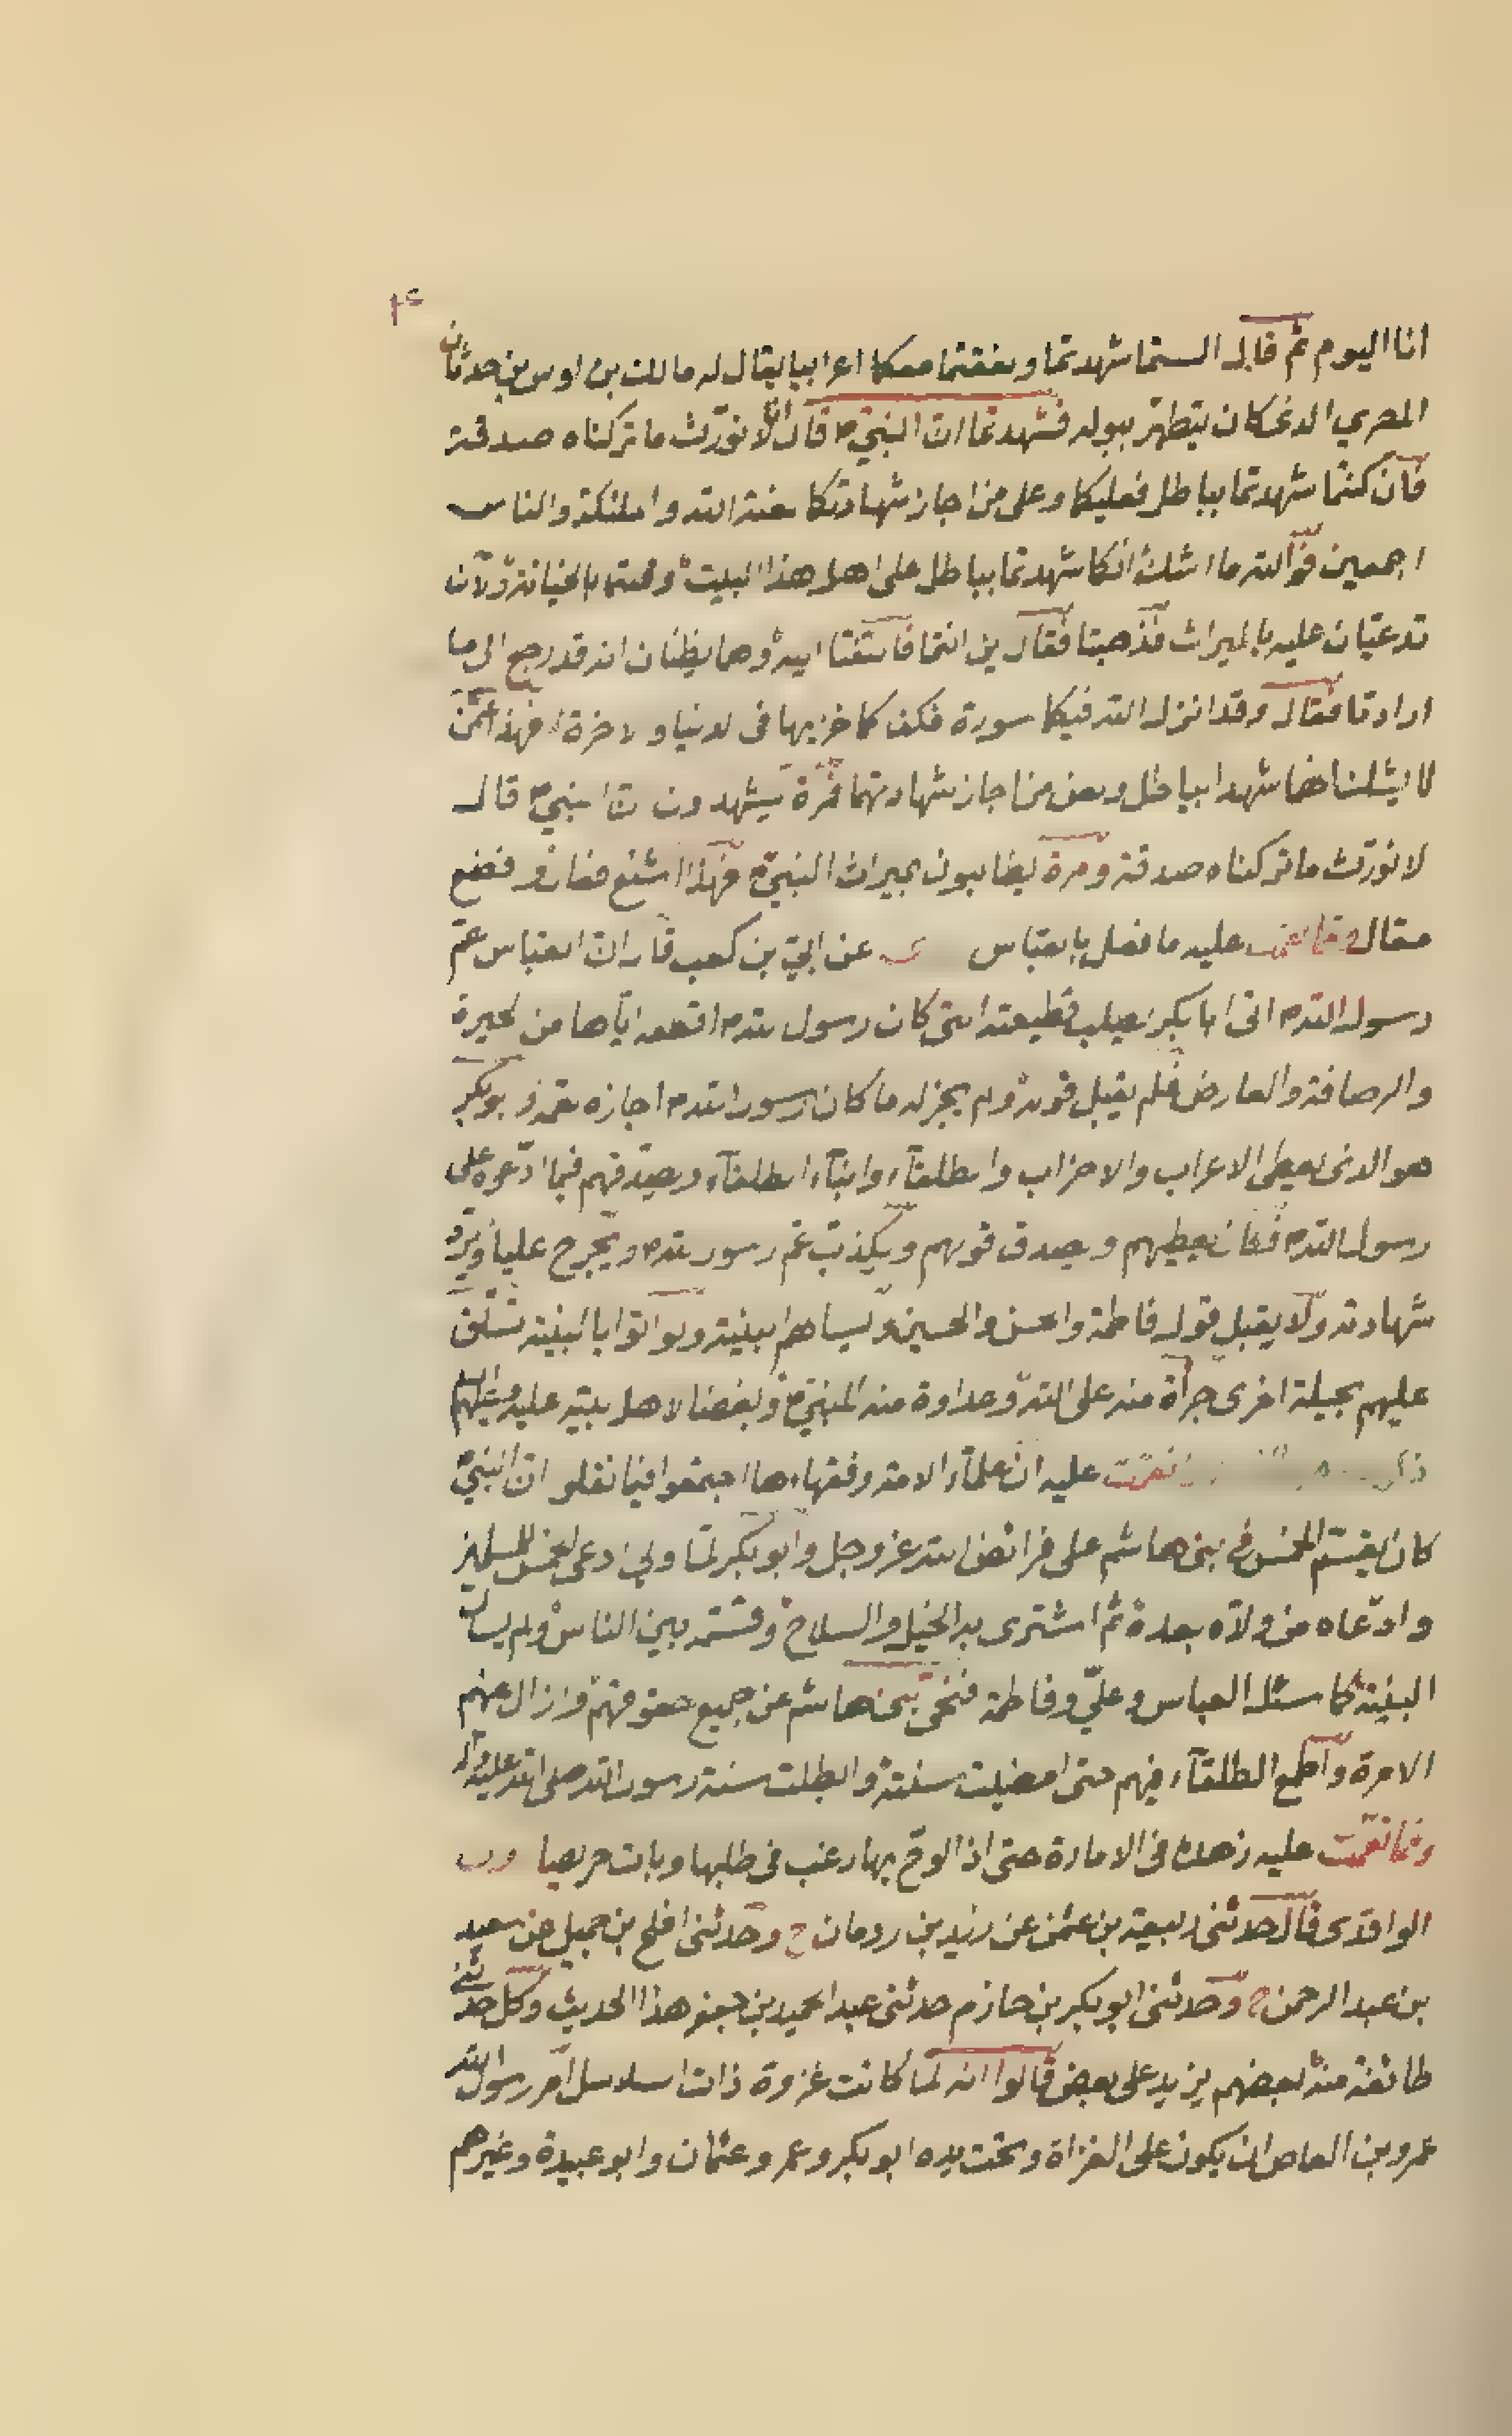 انا اليوم ثم قال الستما شهدتما ولفقتما معكما اعرابيا يقال له مالك بن اوس بن حدثان
النصري الذى كان يتطهّر ببوله فشهدتما انّ النبيّ م قال لا نورّث ما تركناه صدقة
فان كنتما شهدتما بباطل فعليكما وعلى من اجاز شهادتكما لعنة الله والملئكة والناس
اجمعين فوالله ما اشك انكما شهدتما بباطل على اهل هذا البيت وقمتما بالخيانة والآن
تدعيان عليه بالميراث فذهبتا فقال من انتما فالتفتا اليه وهما يظنان انه قد رجع الى ما
ارادتا فقال وقد انزل الله فيكما سورة فكفاكما خزيها فى الدنيا والاخرة فهذا عثمن
لا يشك انهما شهدا بباطل ولعن من اجاز شهادتهما فمرة يشهدون انّ النبيّ م قال
لا نورّث ما تركناه صدقة ومرة يطالبون بميراث النبيّ م فهذا اشنع فعال وافضع
مقال ومما نقمت عليه ما فعل بالعباس عن ابيّ بن كعب قال ان العباس عمّ
رسول الله م اتى ابا بكر يطلب قطيعته التى كان رسول الله م اقطعه اياها من الحيرة
والرصافة والعارض فلم يقبل قوله ولم يجز له ما كان رسول الله م اجازه لعمه وابوبكر
هو الذى يعطى الاعراب والاحزاب والطلقآء وابنآء الطلقآء ويصدّقهم فيما ادّعوه على
رسول الله م فكان يعطيهم ويصدق قولهم ويكذب عم رسول الله م ويجرح عليا ويردّ
شهادته ولا يقبل قول فاطمة والحسن والحسين ويسئلهم البينة ولو اتوا بالبينة تسلّق
عليهم بحيلة اخرى جرأة منه على الله وعداوة منه للنبيّ م وبغضا لاهل بيته عليه وعليهم السلم
نقمت عليه ان علمآء الامة وفقهاءها اجمعوا فيما نقلوا انّ النبيّ
كان يقسّم الخمس فى بنى هاشم على فرائض الله عز وجل وابوبكر لمّا ولى ادعى الخمس للمسلمين
وادّعاه من ولاّه بعده ثم اشترى به الخيل والسلاح وقسّمه بين الناس ولم يسئل
البينة كما سئل العباس وعليّ وفاطمة فنحّى بنى هاشم عن جميع حقوقهم وازال عنهم
الامرة واطمع الطلقآء فيهم حتى امضيت سنته وابطلت سنة رسول الله صلى الله عليه وآله
ومما نقمت عليه زهده فى الامارة حتى اذا لوّح بها رغب فى طلبها وبات حريصا
الواقدى قال حدثنى ربيعة بن عثمن عن يزيد بن رومان ح وحدثنى افلح بن حميل عن سعيد
بن عبد الرحمن ح وحدثنى ابو بكر بن حازم حدثنى عبد الحميد بن جعفر هذا الحديث وكل حدثنى
طائفة منه بعضهم يزيد على بعض قالوا انه لما كانت غزوة ذات السلاسل امر رسول الله
عمرو بن العاص ان يكون على الغزاة وتحت يده ابو بكر وعمر وعثمان وابو عبيدة وغيرهم